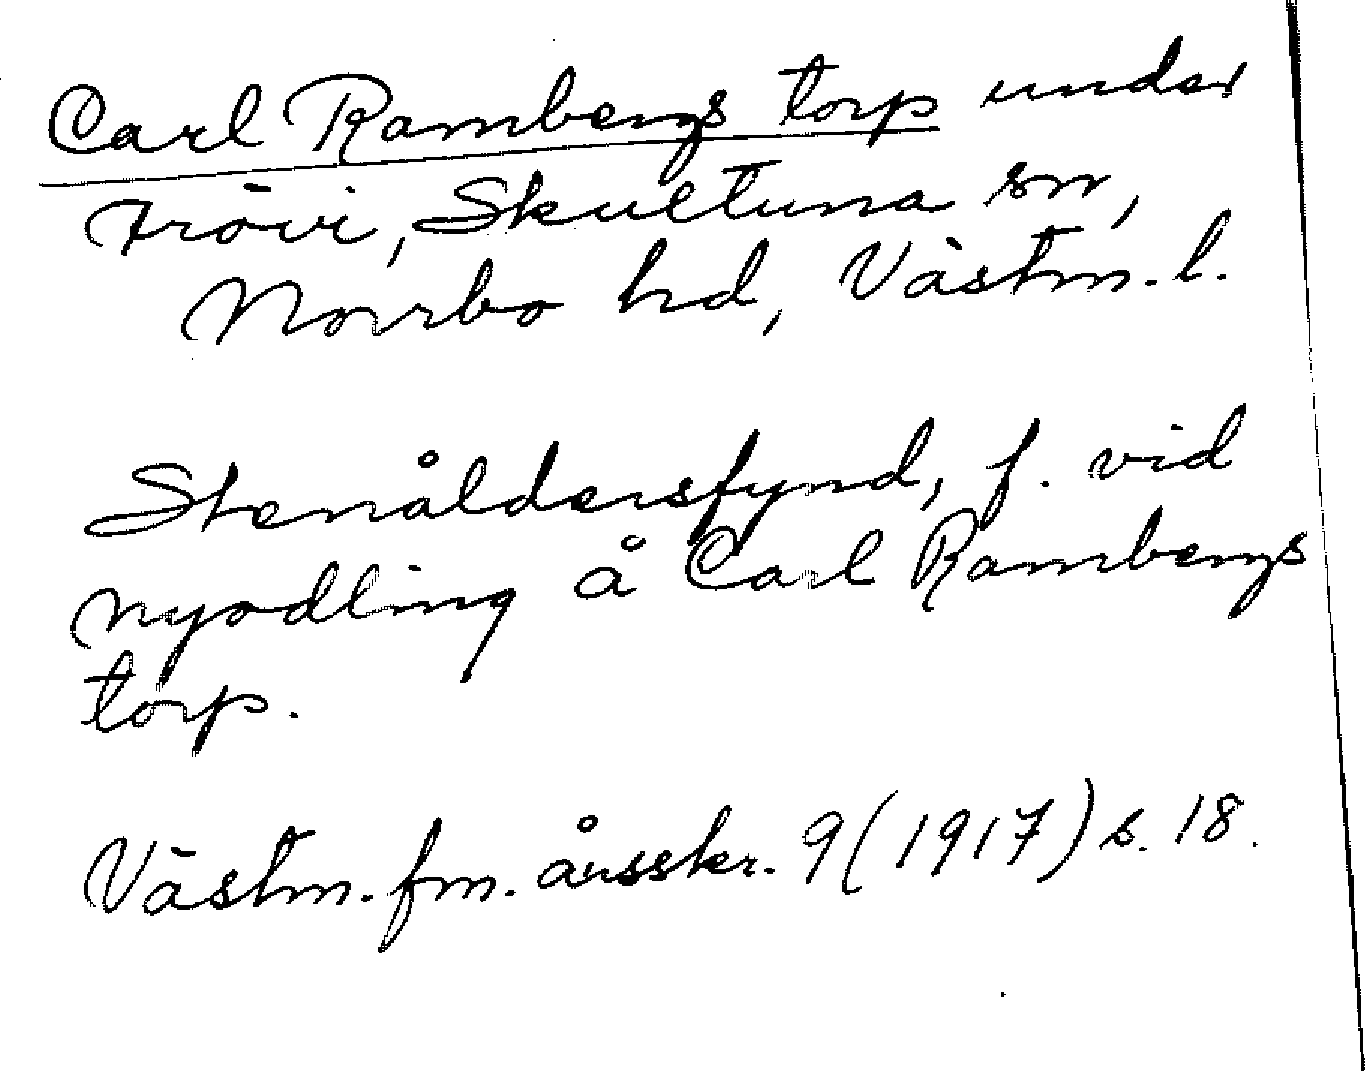 Carl Rambergs torp under
Frövi, Skultuna sn,
Norrbo hd, Västm. l.
Stenåldersfynd, f. vid
nyodling å Carl Rambergs
torp.
Västm. fm. årsskr. 9 (1917) s. 18.